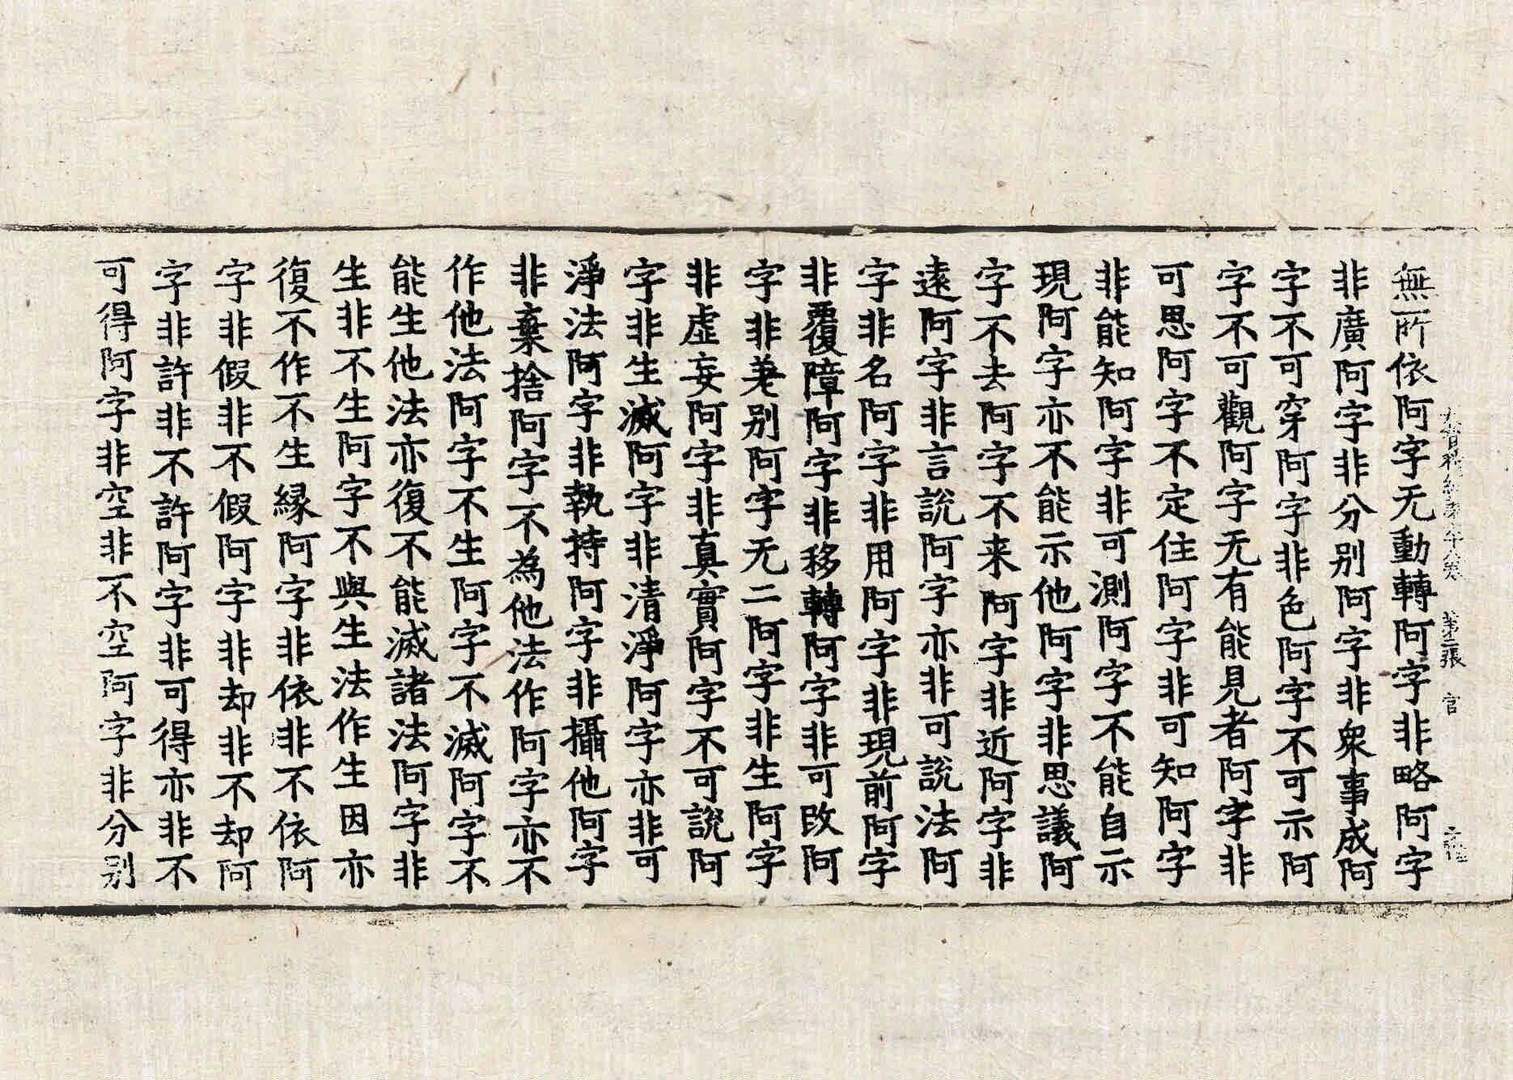 第二張 官
無所依阿字无動轉阿字非略阿字
非廣阿字非分别阿字非衆事成阿
字不可穿阿字非色阿字不可示阿
字不可觀阿字无有能見者阿字非
可思阿字不定住阿字非可知阿字
非能知阿字非可測阿字不能自示
現阿字亦不能示他阿字非思議阿
字不去阿字不来阿字非近阿字非
遠阿字非言說阿字亦非可說法阿
字非名阿字非用阿字非現前阿字
非覆障阿字非移轉阿字非可改阿
字非差别阿字无二阿字非生阿字
非虚妄阿字非真實阿字不可說阿
字非生滅阿字非清淨阿字亦非可
淨法阿字非執持阿字非攝他阿字
非棄捨阿字不為他法作阿字亦不
作他法阿字不生阿字不滅阿字不
能生他法亦復不能滅諸法阿字非
生非不生阿字不與生法作生因亦
復不作不生縁阿字非依非不依阿
字非假非不假阿字非却非不却阿
字非許非不許阿字非可得亦非不
可得阿字非空非不空阿字非分别